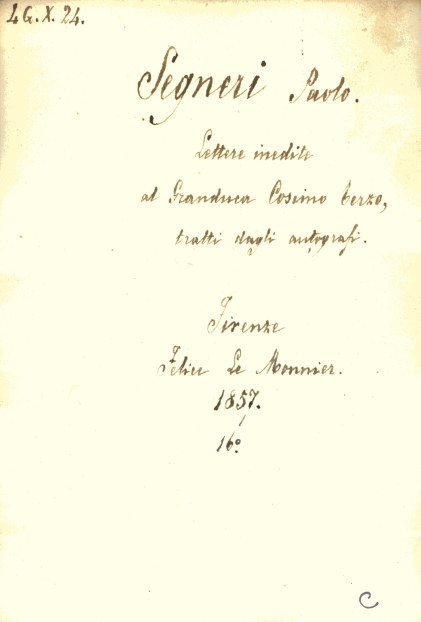 4G.X.24.
Segneri Paolo.
Lettere inedite
al Granduca Cosimo terzo,
tratti dagli autografi.
Firenze
Felice Le Monnier.
1857.
16º
C